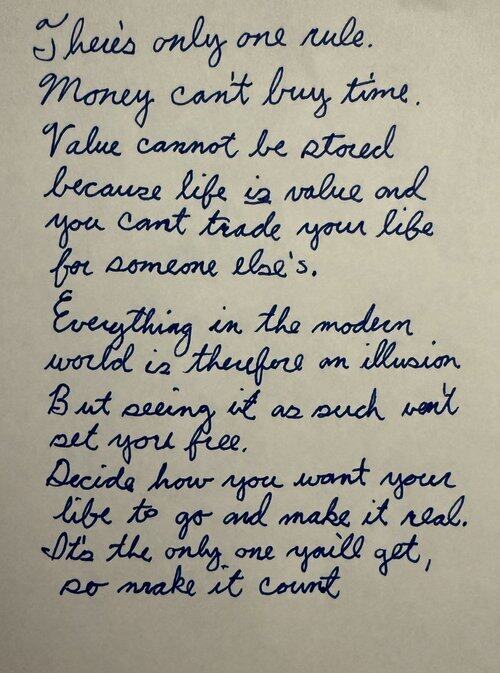 There's only one rule.
Money can't buy time.
Value cannot be stored
because life is value and
you cant trade your life
for someone else's.
Everything in the modern
world is therefore an illusion
But seeing it as such won't
set you free.
Decide how you want your
life to go and make it real.
It's the only one you'll get,
so make it count